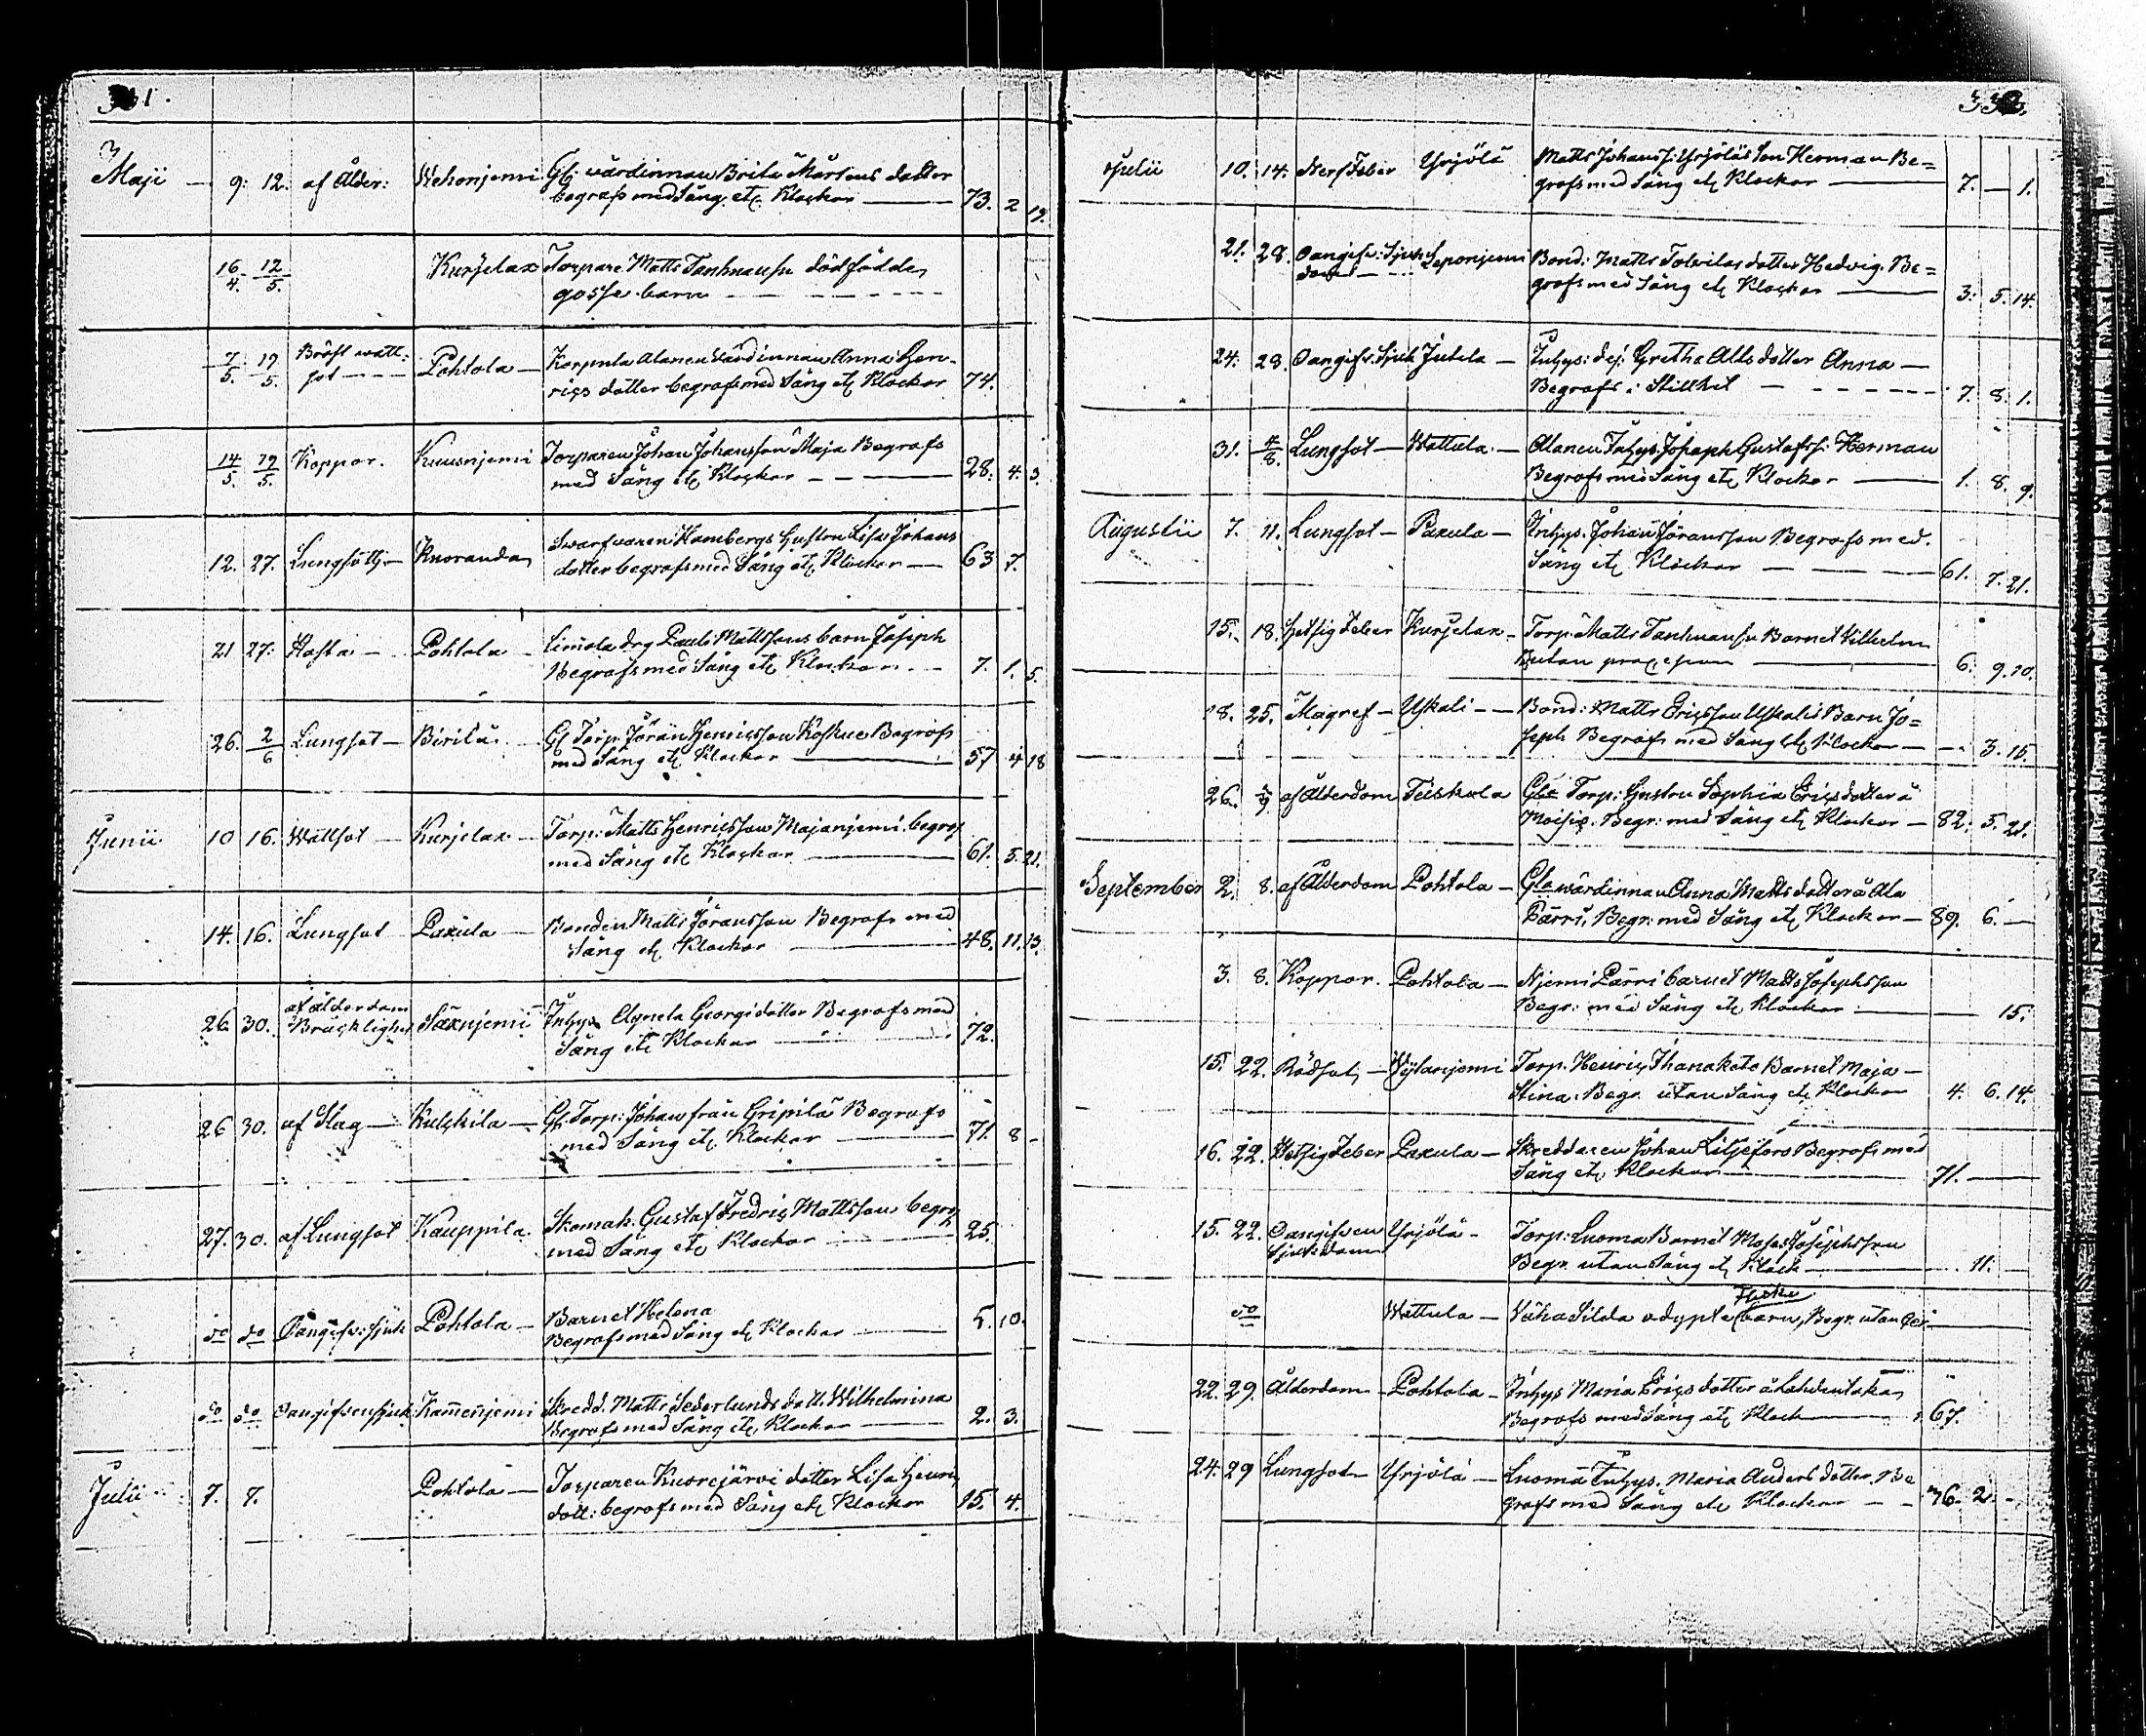 Maji — 9. 12. af Ålder: Wehonjemi Gl: wärdinnan Brita Mårtens dotter
begrafs med Sång etc Klockor — 73. 2 19.
16/4. 12/5. Kurjelax Torpare Matts Tanhuanpu dödfödde
gosse barn — — —
7/5. 19/5. Bröst watt:
sot — — Pohtola — Korpula Alanen Wärdinnan Anna Hen-
rics dotter begrafs med Sång etc Klockor 74.
14/5. 19/5. Koppor. Kuusnjemi Torparen Johan Johansson Maja Begrafs
med Sång etc Klockor — — 28. 4. 3.
12. 27. Lungsot — Knoranda Swarfwaren Hambergs Hustru Lisa Johans
dotter begrafs med Sång etc Klockor — 63 7.
21 27. Hosta — Pohtola — drg Pauli Mattssons barn Joseph
Begrafs med Sång etc Klockor — 7. 1. 5.
26. 2/6 Lungsot — Birilä — Gl Torp. Jöran Henricsson Koskue Begrafs
med Sång etc Klockor — 57 4 18
Junii 10 16. Wattsot — Kurjelax — Torp: Matts Henricsson Majanjemi begrafs
med Sång etc Klockor — 61. 5. 21.
14. 16. Lungsot Paxula — Bonden Matts Jöransson Begrafs med
Sång etc Klockor — 48. 11. 13.
26. 30. af ålderdom
Bräcklighet Säxnjemi Inhys Agneta Georgidotter Begrafs med
Sång etc Klockor — 72.
26 30. af Slag — Kulckila — Gl. Torp: Johan från Gripilä Begrafs
med Sång etc Klockor — 71. 8 —
27. 30. af Lungsot Kauppila. Skomak. Gustaf Fredric Mattsson begrafs
med Sång etc Klockor — 25.
do do Oangifv: sjuk Pohtola — Barnet Helena
Begrafs med Sång etc Klockor — 5. 10.
do do Oangifven sjuk Kamenjemi Skredd. Matts Sederlunds dott. Wilhelmina
Begrafs med Sång etc Klockor — 2. 3.
Julii 7. 7. Pohtola — Torparen Knorejärvi dotter Lisa Henric
dott: begrafs med Sång etc Klockor 15. 4.
Julii 10. 14. Nerffeber Yrjölä Matts Johans S: Yrjöläs Son Herman Be=
grafs med Sång etc Klockor — 7. — 1.
21. 28. Oangifv: Sjuk
dom — Leponjemi Bond: Matts Tolvilas dotter Hedvig. Be=
grafs med Sång etc Klockor — 3. 5. 14.
24. 28. Oangifv. Sjuk Jutila — Inhys: dej: Gretha Alls dotter Anna —
Begrafs i Stillhet — 7. 8. 1.
31. 4/8. Lungsot — Wattula. — Alanen Inhys. Josaph Gustafss: Herman
Begrafs med Sång etc Klockor — 1. 8. 9.
Augustii 7. 11. Lungsot — Paxula — Inhys. Johan Jöransson Begrafs med.
Sång etc Klockor — 61. 7. 21.
15. 18. Hetsig feber Kurjelax — Torp. Matts Tanhuanpu Barnet Vilhelm
Butan processen — 6. 9. 10.
18. 25. Magref — Uskali — — Bond: Matts Ericsson Uskalis Barn Jo=
seph Begrafs med Sång etc Klockor — — 3. 15.
26. af Ålderdom Tuiskula Gla Torp: Hustru Sophia Ericsdotter å
Moisio. Begr: med Sång etc Klockor — 82. 5. 21.
September 2. 8. af Ålderdom Pohtola — Gla wärdinnan Anna Mattsdotter å Ala
Pärri. Begr: med Sång etc Klockor — 89. 6. —
3. 8. Koppor. Pohtola — Njemi Pärri barnet Matts Josephsson
Begr: med Sång etc Klockor — 15.
15. 22. Rödsot — Wylanjemi Torp. Henric Ihanakato Barnet Maja —
Stina. Begr. utan Sång etc Klockor 4. 6. 14.
16. 22. Hetsig feber Paxula — Skreddaren Johan Liljefors Begrafs med
Sång etc Klockor — 71. —
15. 22. Oangifven
Sjukdom Yrjölä — Torp: Luoma Barnet Moses Josephsson
Begr. utan Sång etc Klock — 11. —
do Wattula — Wäha Silda odypte
barn, Begr. utan
22. 29. Ålderdom — Pohtola — Inhys Maria Erics dotter å Lahdentaka
Begrafs med Sång etc Klock — 67.
24. 29 Lungsot — Yrjölä — Luoma Inhys. Maria Anders dotter. Be
grafs med Sång etc Klockor — — 76. 2. —